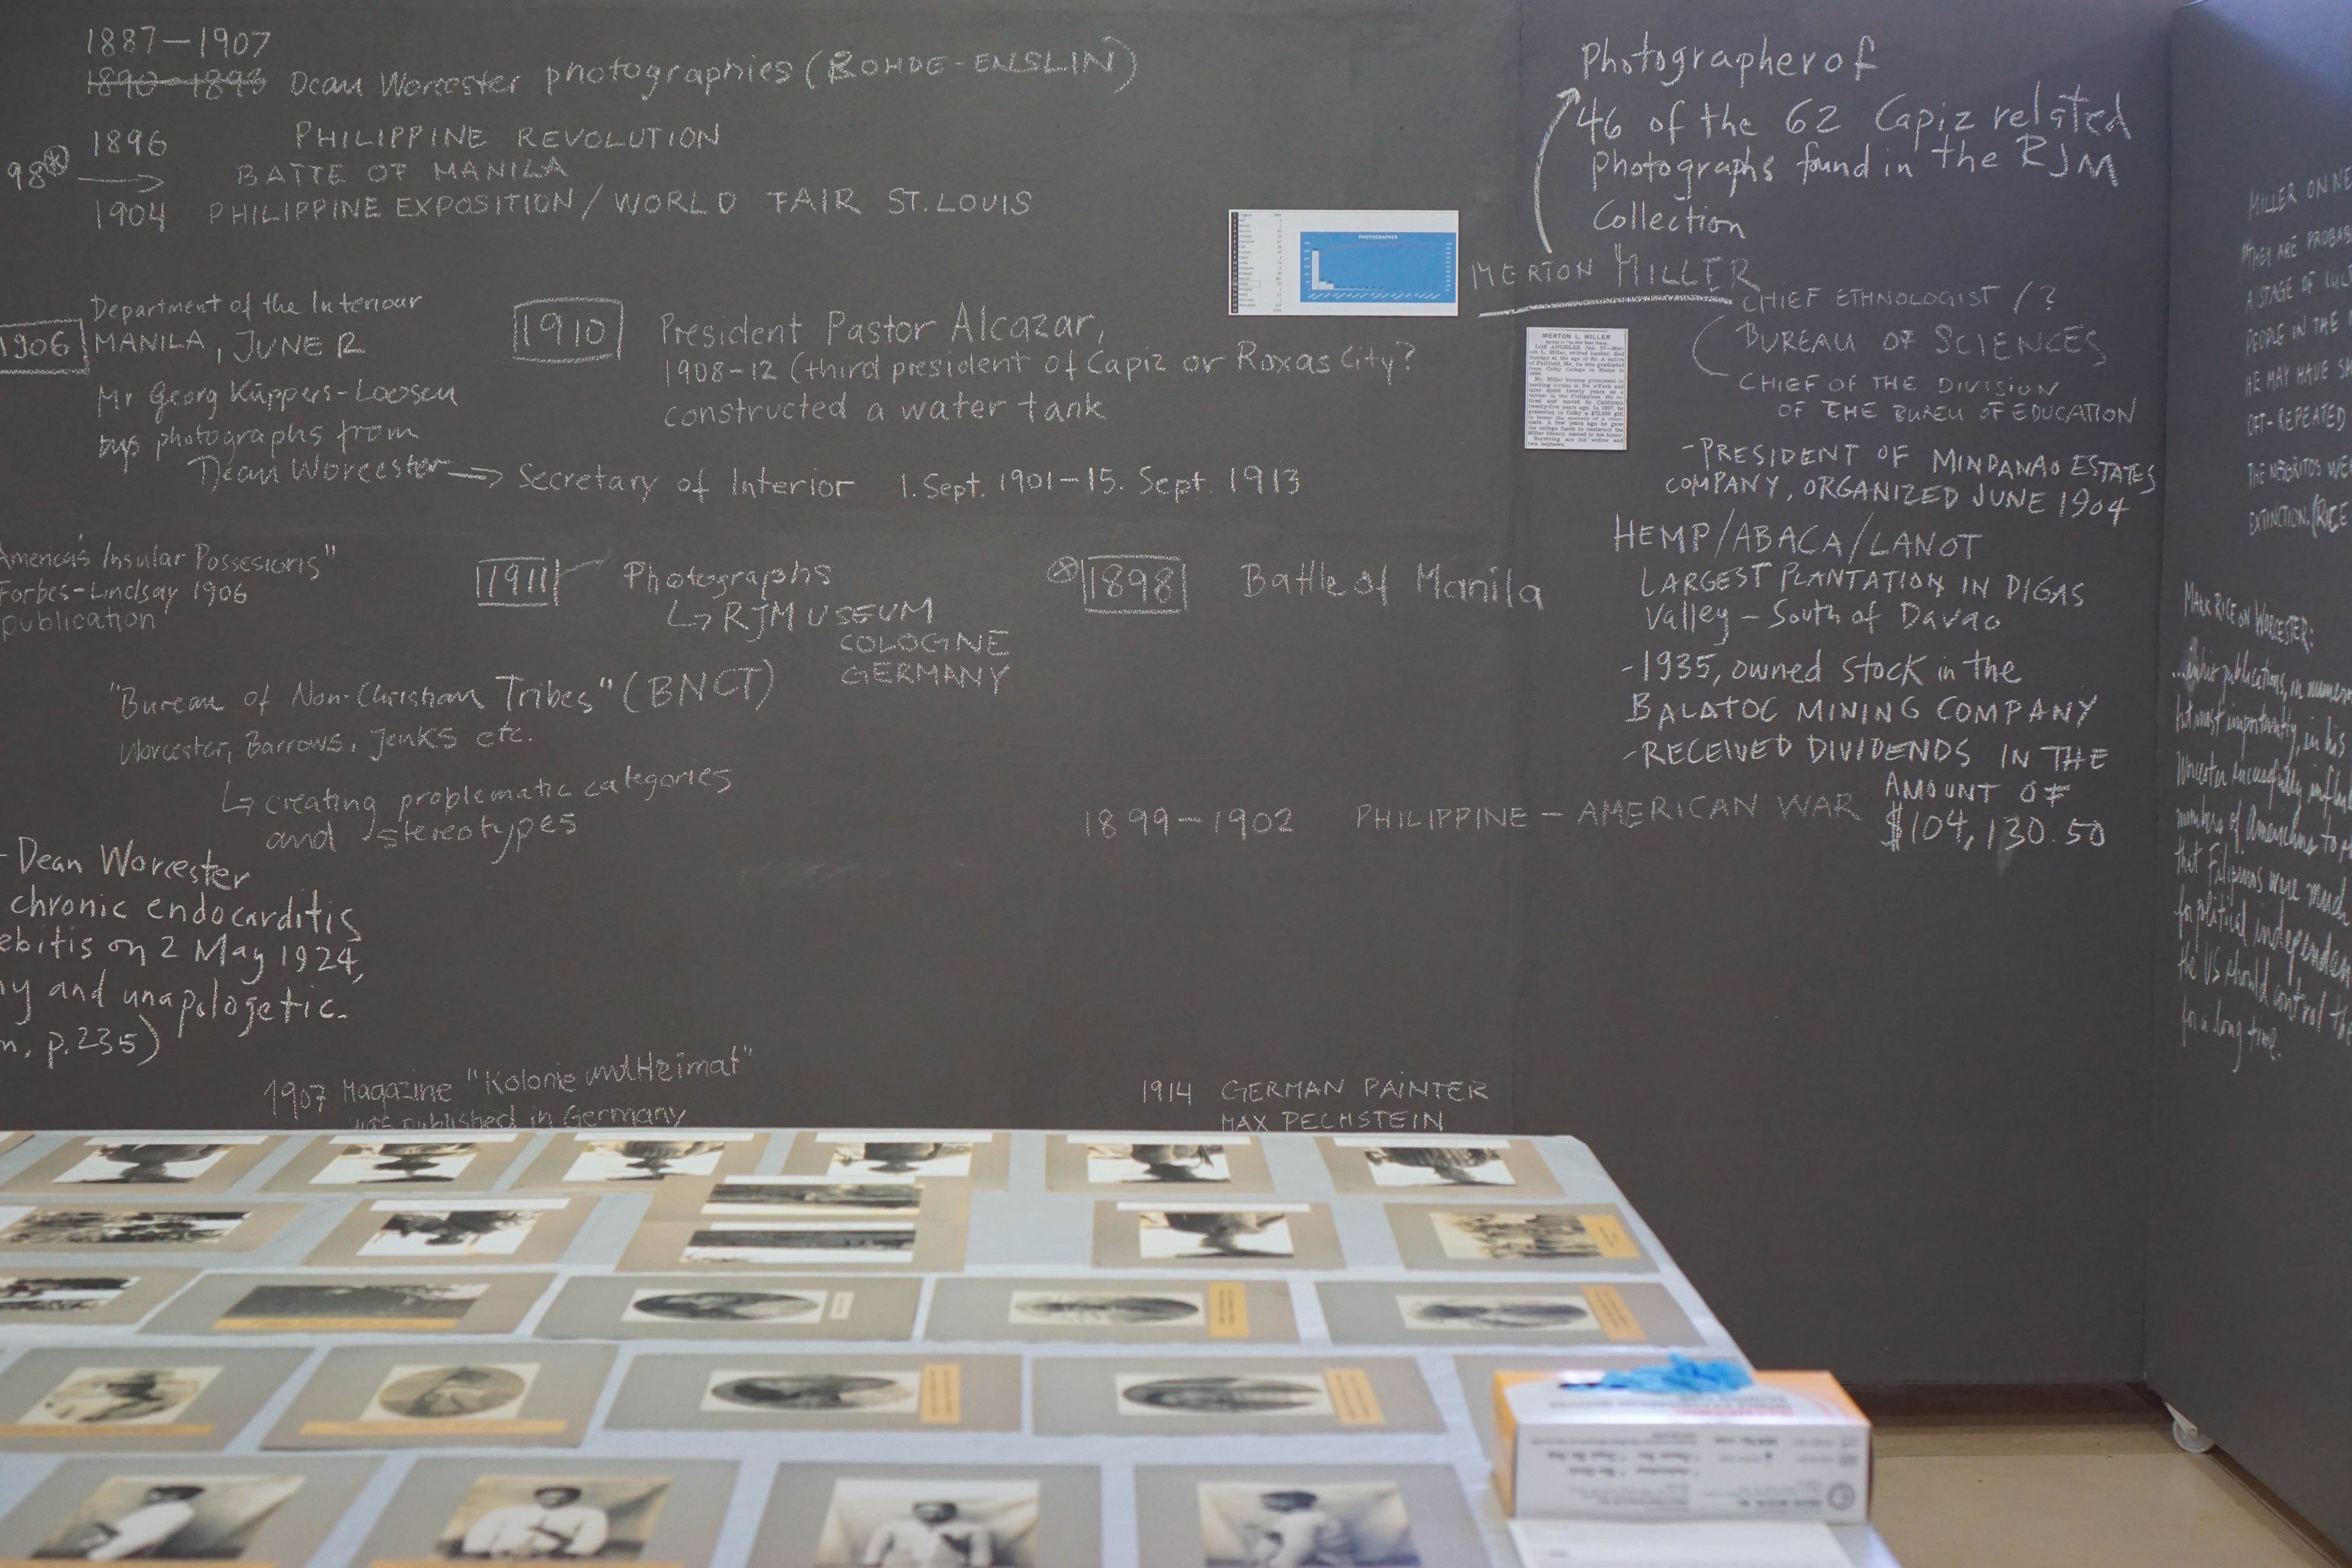 1887–1907
1890–1893 Dean Worcester photographies (ROHDE-ENSLIN)
1896 PHILIPPINE REVOLUTION
98 → BATTE OF MANILA
1904 PHILIPPINE EXPOSITION / WORLD FAIR ST. LOUIS
1906
Department of the Interiour
MANILA, JUNE 12
Mr. Georg Küppers-Loosen
buys photographs from
Dean Worcester → Secretary of Interior 1. Sept. 1901–15. Sept. 1913
1910
President Pastor Alcazar,
1908–12 (third president of Capiz or Roxas City?
constructed a water tank
America's Insular Possesions"
Forbes-Lindsay 1906
publication
1911 Photographs
↳ RJMUSEUM
COLOGNE
GERMANY
⊗ 1898 Battle of Manila
"Bureau of Non-Christian Tribes" (BNCT)
Worcester, Barrows, Jenks etc.
↳ creating problematic categories
and stereotypes
1899–1902 PHILIPPINE – AMERICAN WAR
- Dean Worcester
chronic endocarditis
ebitis on 2 May 1924,
ny and unapologetic.
n, p. 235)
1907 Magazine "Kolonie und Heimat"
was published in Germany
1914 GERMAN PAINTER
MAX PECHSTEIN
Photographer of
46 of the 62 Capiz related
photographs found in the RJM
Collection
PHOTOGRAPHER
MERTON MILLER
CHIEF ETHNOLOGIST / ?
BUREAU OF SCIENCES
CHIEF OF THE DIVISION
OF THE BUREU OF EDUCATION
MERTON L. MILLER
-PRESIDENT OF MINDANAO ESTATES
COMPANY, ORGANIZED JUNE 1904
HEMP/ABACA/LANOT
LARGEST PLANTATION IN DIGAS
Valley – South of Davao
-1935, owned stock in the
BALATOC MINING COMPANY
-RECEIVED DIVIDENDS IN THE
AMOUNT OF
$104,130.50
MILLER ON NE
"THEY ARE PROBAB
A STAGE OF
PEOPLE IN THE
HE MAY HAVE
OFT-REPEATED
THE NEGRITOS WE
EXTINCTION. (RICE
MARK RICE ON WORCESTER:
publications, in
but most importantly, in his
Worcester successfully influ
numbers of Americans to
that Filipinos were much
for political independen
the US should control
for a long time.